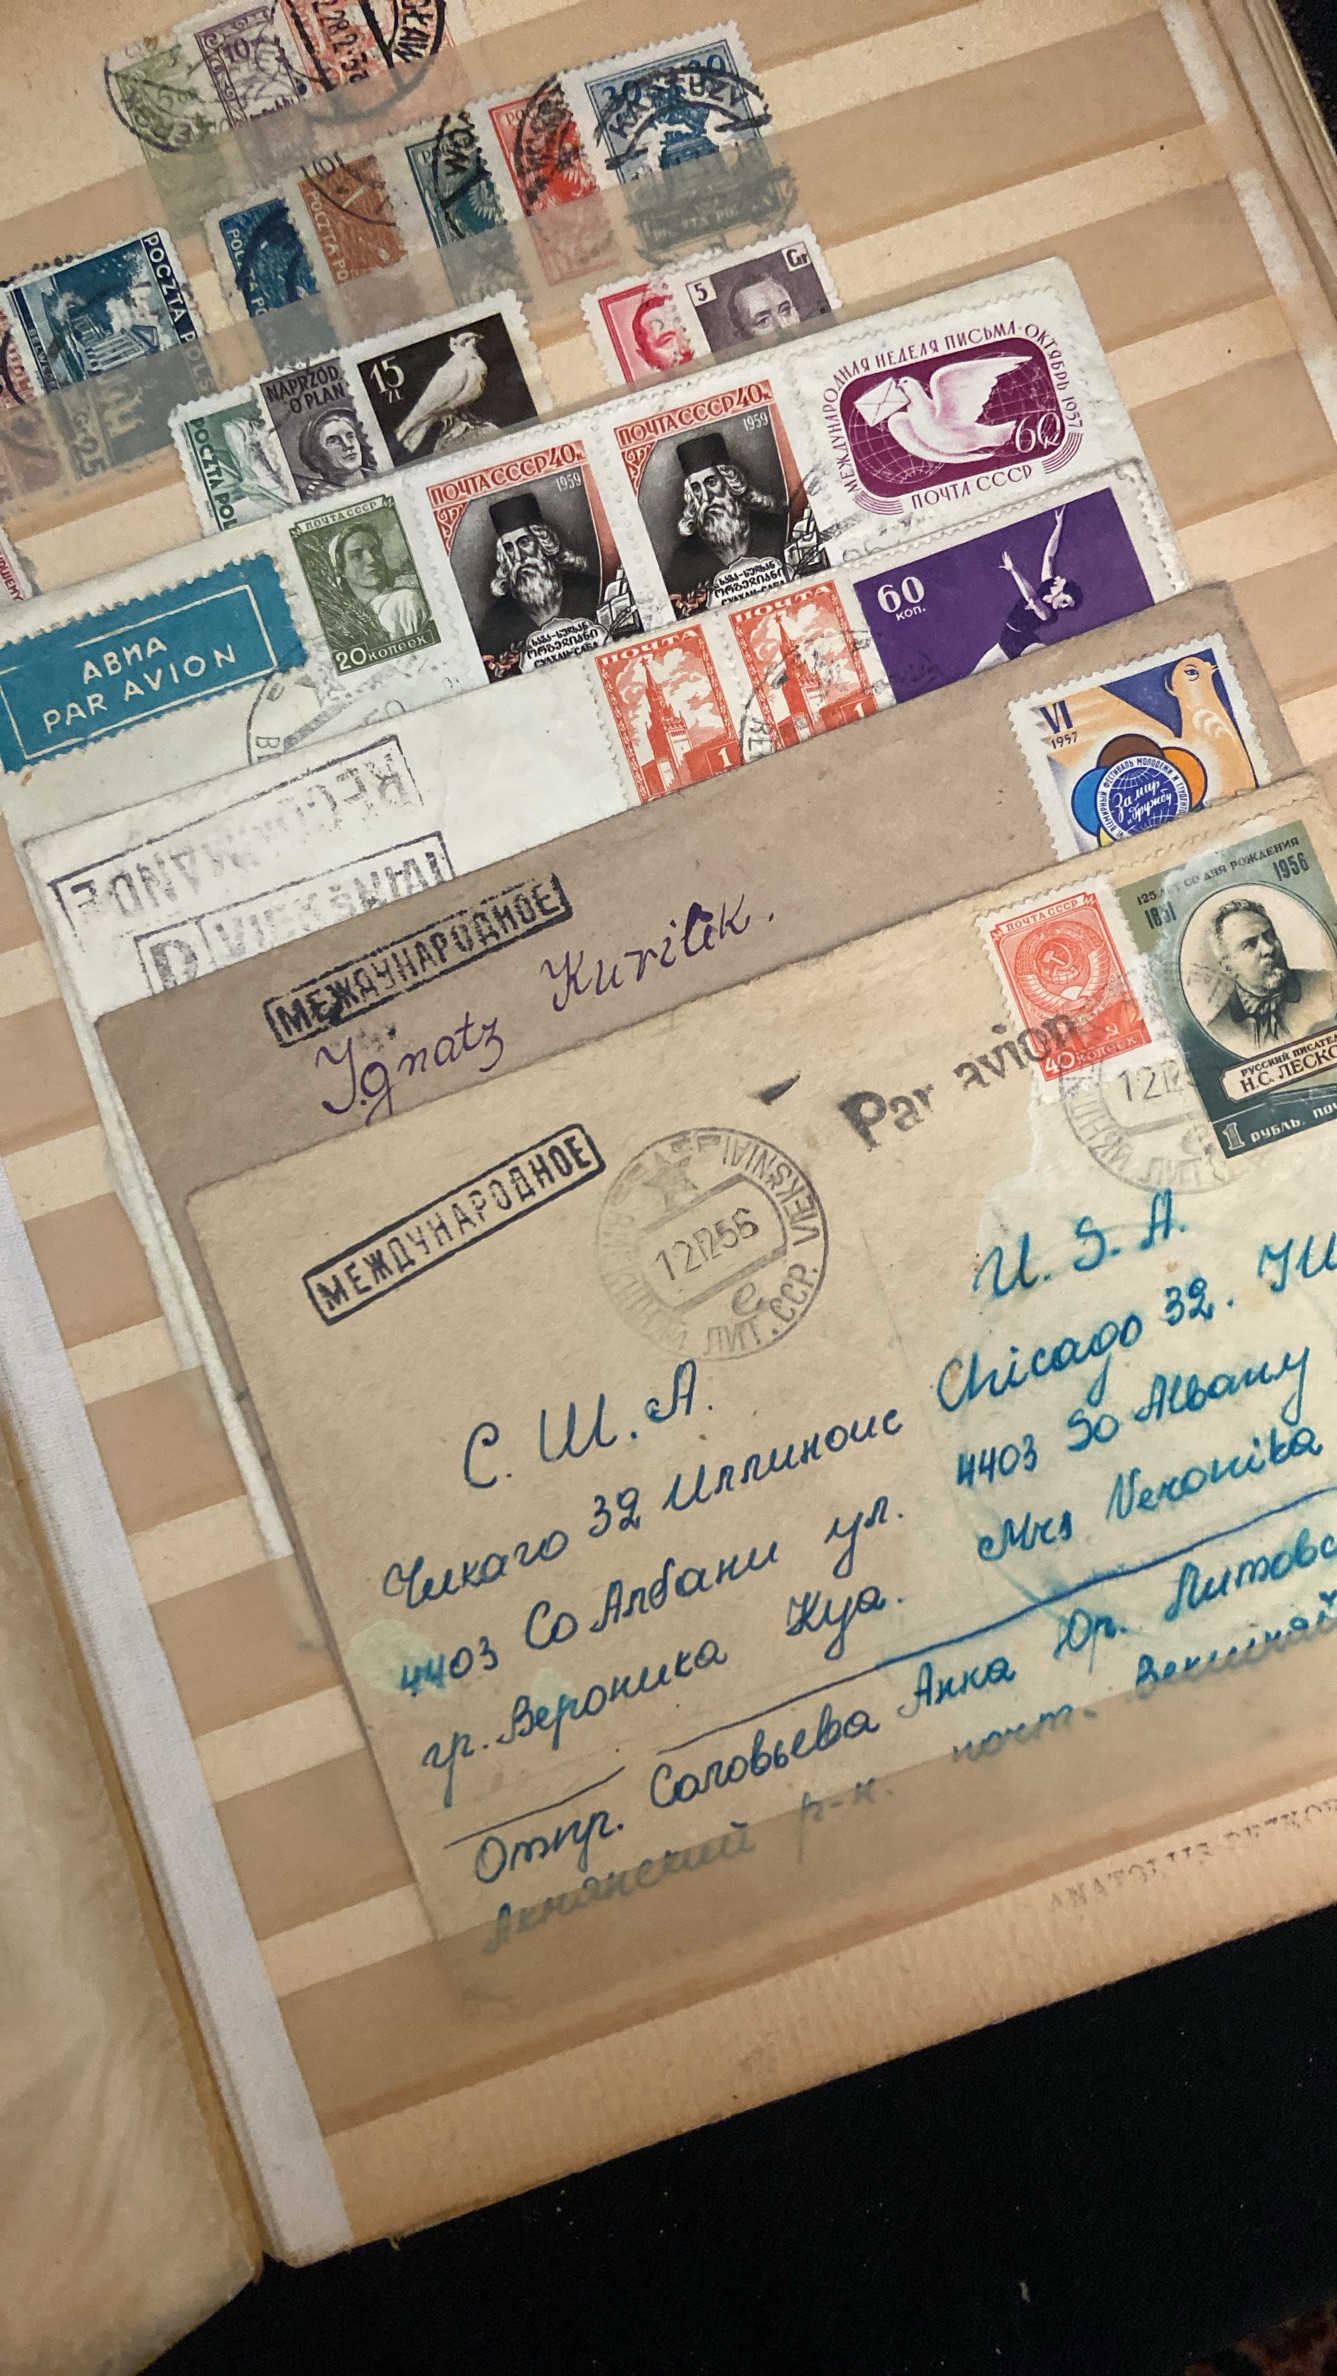 10
POCZTA POLSKA
POCZTA PO
30
5
Gr
25
NAPRZÓD
O PLAN
15
ZŁ
POCZTA POL
МЕЖДУНАРОДНАЯ НЕДЕЛЯ ПИСЬМА·ОКТЯБРЬ 1957
60к
ПОЧТА СССР
ПОЧТА СССР 40к
1959
ПОЧТА СССР 40к
1959
СУЛХАН-САБА
ПОЧТА СССР
20 копеек
АВИА
PAR AVION
60
КОП.
ПОЧТА
1
ПОЧТА
1
VI
1957
ВСЕМИРНЫЙ ФЕСТИВАЛЬ МОЛОДЕЖИ И СТУДЕНТОВ
За мир
и дружбу
RECOMMANDE
VIEKŠNIAI
МЕЖДУНАРОДНОЕ
Ignatz Kurilik.
ПОЧТА СССР
40 копеек
125 ЛЕТ СО ДНЯ РОЖДЕНИЯ
1831
1956
РУССКИЙ ПИСАТЕЛ
Н.С. ЛЕСКО
1 РУБЛЬ. ПОЧ
Par avion
МЕЖДУНАРОДНОЕ
VIEKŠNIAI
12 12 56
е
ЛИТ. ССР.
U. S. A.
Chicago 32. Ill
4403 So Albany
Mrs Veronika
С. Ш. А.
Чикаго 32 Иллиноис
4403 Со Албани ул.
гр. Вероника Куа.
Отпр. Соловьева Анна Юр. Литовс
Акмянский р-н. почт. Векшняй